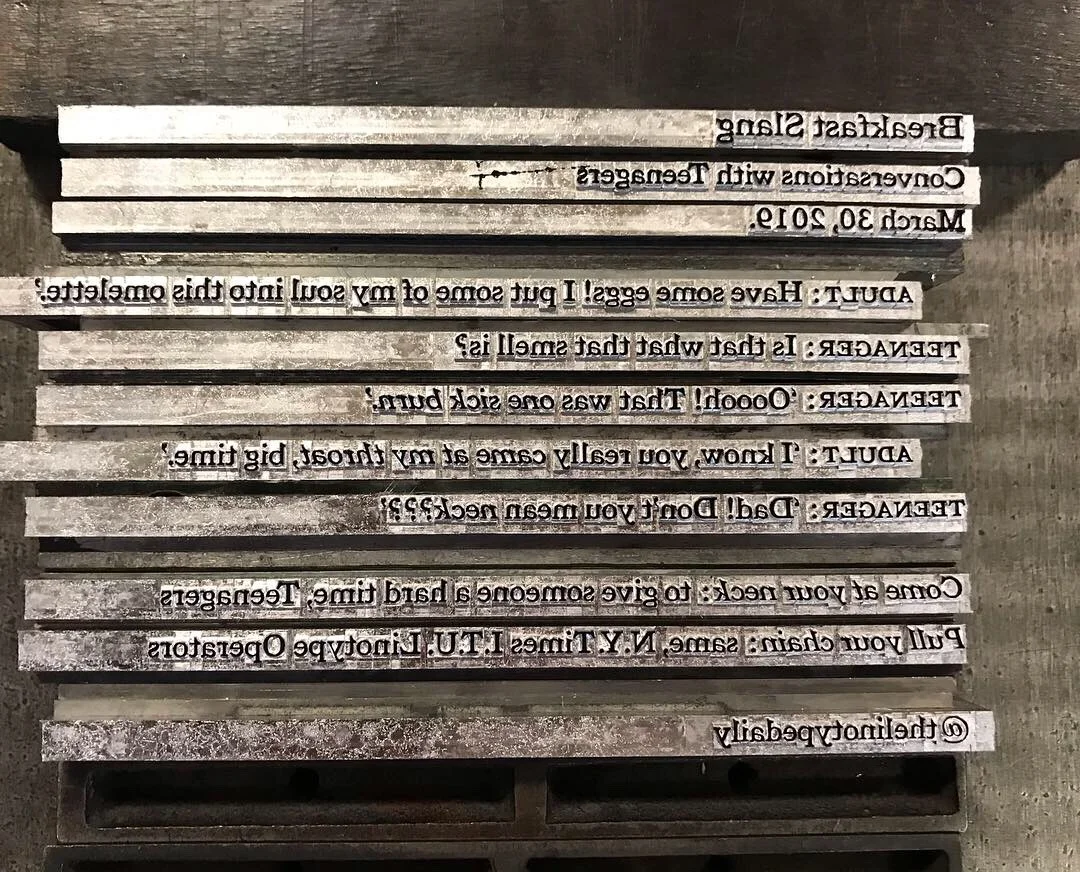 Breakfast Slang
Conversations with Teenagers
March 30, 2019.
ADULT: Have some eggs! I put some of my soul into this omelette.'
TEENAGER: Is that what that smell is?
TEENAGER: 'Ooooh! That was one sick burn.'
ADULT: 'I know, you really came at my throat, big time.'
TEENAGER: 'Dad! Don't you mean neck???'
Come at your neck: to give someone a hard time, Teenagers
Pull your chain: same, N.Y.Times I.T.U. Linotype Operators
@thelinotypedaily